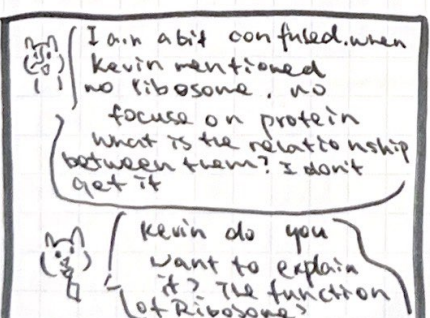 I am a bit confused. when
Kevin mentioned
no ribosome. no
focuse on protein
what is the relationship
between them? I don't
get it
Kevin do you
want to explain
it? The function
of Ribosome?